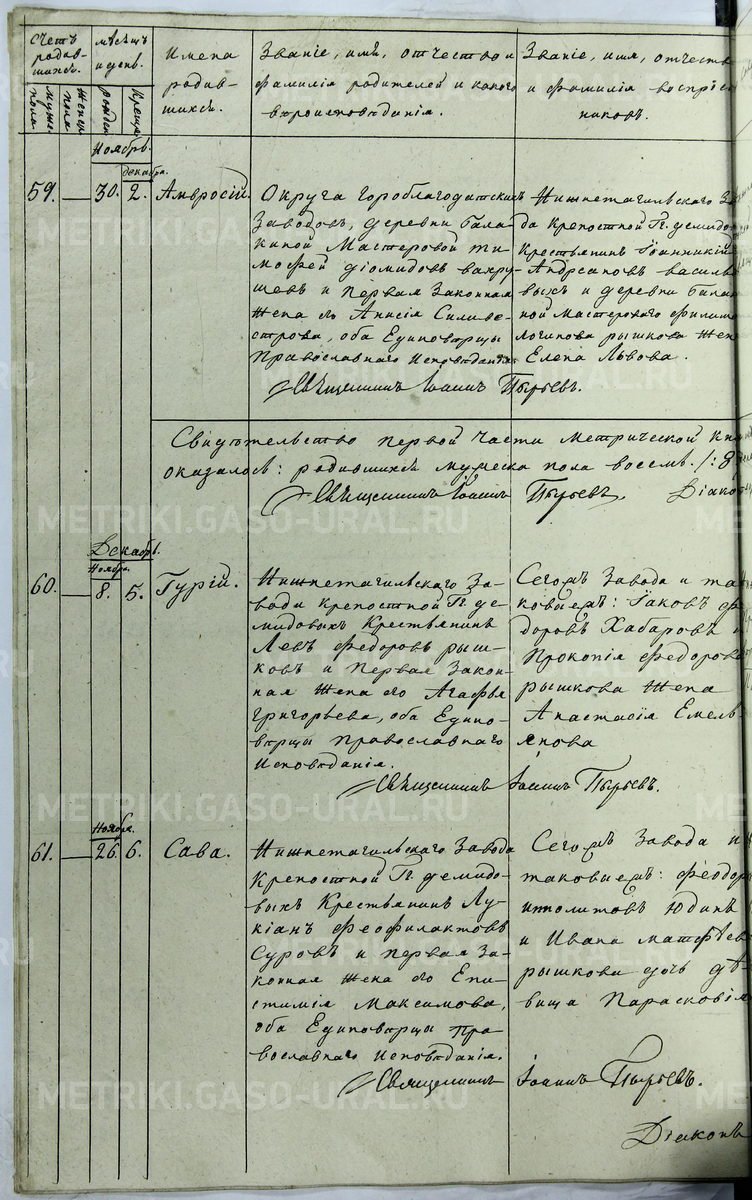 Счетъ родив-шихся.
Мѣсяцъ и день.
Имена родив-шихся.
Званіе, имя, отчество и фамилія родителей и какого вѣроисповѣданія.
Званіе, имя, отчеств
и фамилія воспріе
никовъ.
Муже пола
Женск пола
Рожден
Креще
Ноябрь.
декабря.
59.
30.
2.
Амвросій.
Округа Гороблагодатскихъ
Заводовъ, деревни Бала-
киной Мастеровой Ти-
мофей Діомидовъ Вахру-
шевъ и первая Законная
Жена его Анисія Сильве-
строва, оба Единовѣрцы
Православнаго Исповѣданія.
Нижнетагильскаго За
да Крепостной Гг. Демидо
Крестьянинъ Іоанникій
Андреановъ Василь
выхъ и деревни Бала
ной Мастероваго Филимо
Логинова Рышкова Жен
Елена Львова.
Священникъ Іоаннъ Пырьевъ.
Свидѣтельство первой части метрической Кни
оказалось: родившихся мужеска пола восемь /: 8
Священникъ Іоаннъ Пырьевъ. Діако
Декабрь.
Ноября.
60.
8.
5.
Гурій.
Нижнетагильскаго За-
вода крепостной Гг. Де-
мидовыхъ Крестьянинъ
Левъ Федоровъ Рыш-
ковъ и первая Закон-
ная Жена его Агафья
Григорьева, оба Едино-
вѣрцы Православнаго
Исповѣданія.
Сегожъ Завода и та
ковыежъ: Іаковъ Фе
доровъ Хабаровъ и
Прокопія Федорова
Рышкова Жена
Анастасія Емель
янова
Священникъ Іоаннъ Пырьевъ.
Ноября.
61.
26.
6.
Сава.
Нижнетагильскаго Завода
Крепостной Гг. Демидо-
выхъ Крестьянинъ Лу-
кіанъ Феофилактовъ
Суровъ и первая За-
конная Жена его Епи-
стимія Максимова,
оба Единовѣрцы Пра-
вославнаго Исповѣданія.
Сегожъ Завода и
таковыежъ: Феодоръ
Ипполитовъ Юдинъ
и Ивана Матфѣева
Рышкова дочь дѣ-
вица Парасковія
Священникъ Іоаннъ Пырьевъ.
Діаконъ
METRIKI.GASO-URAL.RU